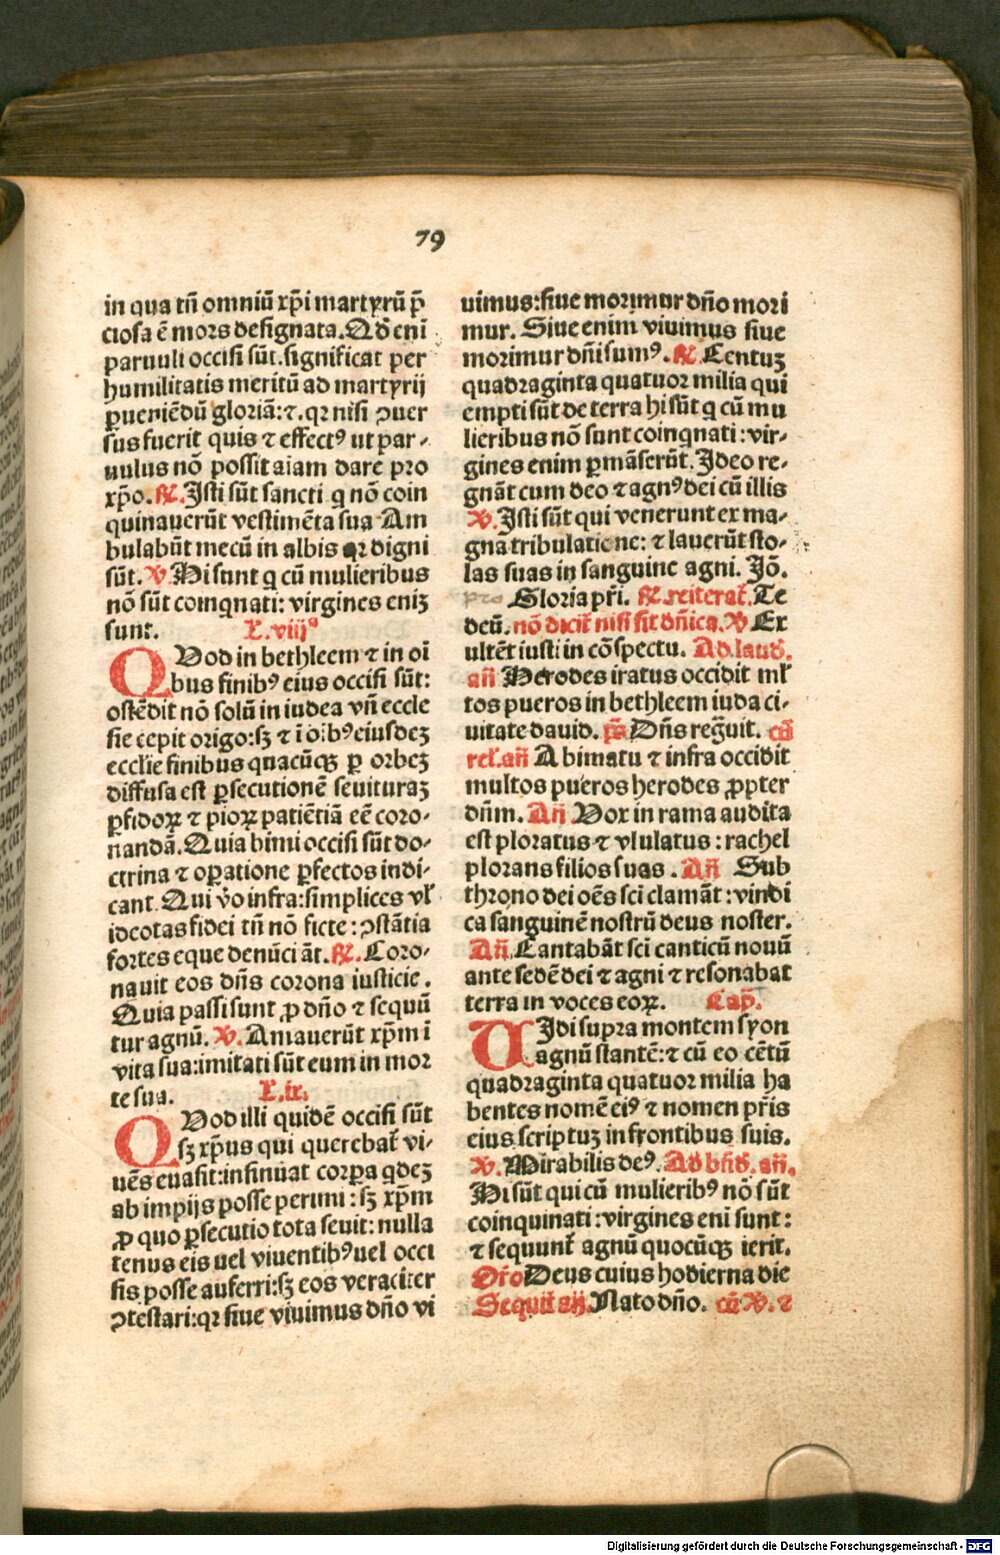 79
in qua tñ omniū xp̄i martyrū p̄
ciosa ē mors designata. Qd̓ eni
paruuli occisi sūt. significat per
humilitatis meritū ad martyrij
ꝑueniēdū gloriā: ⁊. qꝛ nisi ↄuer
sus fuerit quis ⁊ effectꝰ ut par⸗
uulus nō possit aīam dare pro
xp̄o. ℟. Isti sūt sancti q nō coin
quinauerūt vestimēta sua Am
bulabūt mecū in albis qꝛ digni
sūt. ℣. Hi sunt q cū mulieribus
nō sūt coinqnati: virgines eniꝫ
sunt. L. viijᵃ
QVod in bethleem ⁊ in oī
bus finibꝰ eius occisi sūt:
ostēdit nō solū in iudea vn̄ eccle
sie cepit origo: sꝫ ⁊ ī oībꝰ eiusdeꝫ
ecclīe finibus quacūqꝫ ꝑ orbeꝫ
diffusa est ꝑsecutionē seuituraꝫ
ꝑfidoꝝ ⁊ pioꝝ patiētiā eē coro⸗
nandā. Quia bimi occisi sūt do⸗
ctrina ⁊ oꝑatione ꝑfectos indi⸗
cant. Qui v̓o infra: simplices vł
ideotas fidei tn̄ nō ficte: ↄstātia
fortes eque denūciāt. ℟. Coro⸗
nauit eos dn̄s corona iusticie.
Quia passi sunt ꝓ dn̄o ⁊ sequū
tur agnū. ℣. Amauerūt xp̄m ī
vita sua: imitati sūt eum in mor
te sua. L. ix.
QVod illi quidē occisi sūt
sꝫ xp̄us qui querebat̓ vi⸗
uēs euasit: insinuat corꝑa qdeꝫ
ab impijs posse perimi: sꝫ xp̄m
ꝓ quo ꝑsecutio tota seuit: nulla
tenus eis uel viuentibꝰ uel occi
sis posse auferri: sꝫ eos veraciter
ↄtestari: qꝛ siue viuimus dn̄o vi
uimus: siue morimur dn̄o mori
mur. Siue enim viuimus siue
morimur dn̄i sumꝰ. ℟. Centuꝫ
quadraginta quatuor milia qui
empti sūt de terra hi sūt q cū mu
lieribus nō sunt coinqnati: vir⸗
gines enim ꝑmāserūt. Ideo re⸗
gnāt cum deo ⁊ agnꝰ dei cū illis
℣. Isti sūt qui venerunt ex ma⸗
gnā tribulatione: ⁊ lauerūt sto⸗
las suas in sanguine agni. Iō.
pro Gloria pr̄i. ℟. reiterat̓. Te
deū. nō dicit̓ nisi sit dn̄ica. ℣ Ex
ultēt iusti in cōspectu. Ad laud̓.
añ Herodes iratus occidit ml̓
tos pueros in bethleem iuda ci⸗
uitate dauid. p̄s Dn̄s regͣuit. cū
rel̓. añ A bimatu ⁊ infra occidit
multos pueros herodes ꝓpter
dn̄m. Añ Vox in rama audita
est ploratus ⁊ vlulatus: rachel
plorans filios suas. Añ Sub
throno dei oēs sci clamāt: vindi
ca sanguinē nostrū deus noster.
Añ. Cantabāt sci canticū nouū
ante sedē dei ⁊ agni ⁊ resonabat
terra in voces eoꝝ. Cap̄.
VIdi supra montem syon
agnū stantē: ⁊ cū eo cētū
quadraginta quatuor milia ha
bentes nomē eiꝰ ⁊ nomen pr̄is
eius scriptuꝫ in frontibus suis.
℣. Mirabilis deꝰ. Ad bn̄d̓. añ.
Hi sūt qui cū mulieribꝰ nō sūt
coinquinati: virgines eni sunt:
⁊ sequunt̓ agnū quocūqꝫ ierit.
Or̄o Deus cuius hodierna die
Sequit̓ añ. Nato dn̄o. cū ℣. ⁊
Digitalisierung gefördert durch die Deutsche Forschungsgemeinschaft - DFG